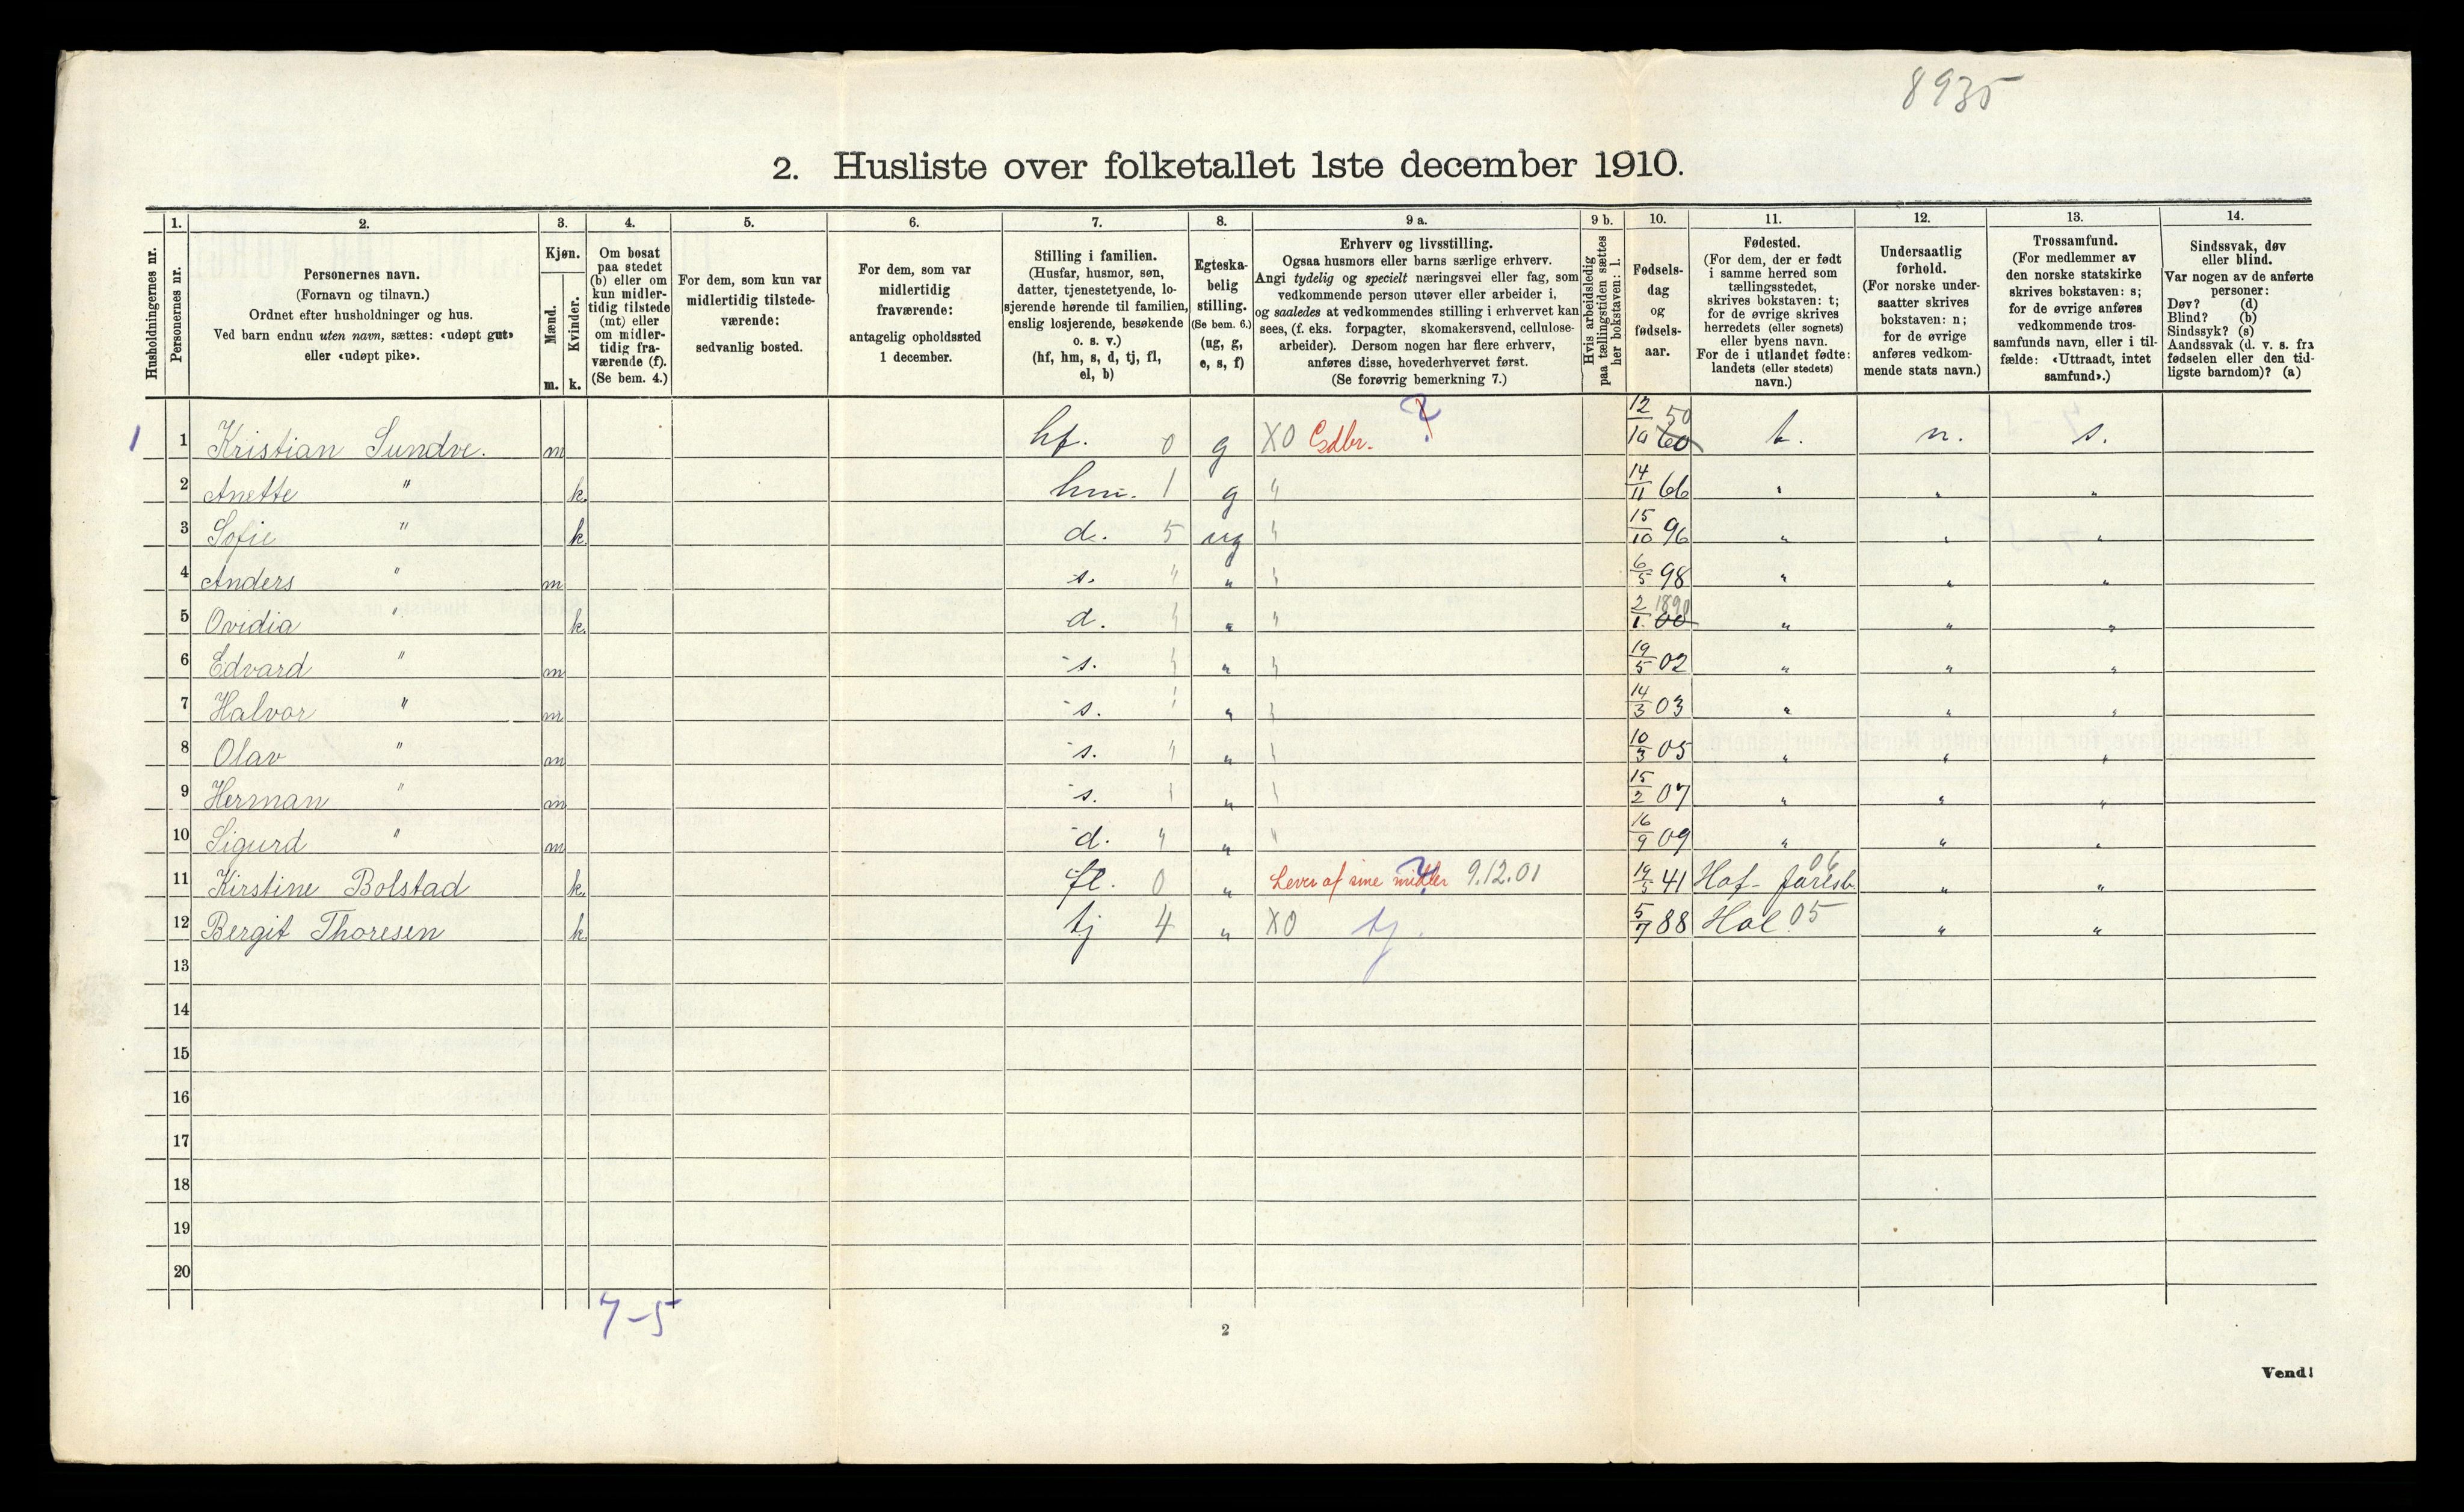 8935
2. Husliste over folketallet 1ste december 1910.
Husholdningernes nr.
1.
Personernes nr.
2.
Personernes navn.
(Fornavn og tilnavn.)
Ordnet efter husholdninger og hus.
Ved barn endnu uten navn, sættes: «udøpt gut»
eller «udøpt pike».
3.
Kjøn.
Mænd.
Kvinder.
m. k.
4.
Om bosat
paa stedet
(b) eller om
kun midler-
tidig tilstede
(mt) eller
om midler-
tidig fra-
værende (f).
(Se bem. 4.)
5.
For dem, som kun var
midlertidig tilstede-
værende:
sedvanlig bosted.
6.
For dem, som var
midlertidig
fraværende:
antagelig opholdssted
1 december.
7.
Stilling i familien.
(Husfar, husmor, søn,
datter, tjenestetyende, lo-
sjerende hørende til familien,
enslig losjerende, besøkende
o. s. v.)
(hf, hm, s, d, tj, fl,
el, b)
8.
Egteska-
belig
stilling.
(Se bem. 6.)
(ug, g,
e, s, f)
9 a.
Erhverv og livsstilling.
Ogsaa husmors eller barns særlige erhverv.
Angi tydelig og specielt næringsvei eller fag, som
vedkommende person utøver eller arbeider i,
og saaledes at vedkommendes stilling i erhvervet kan
sees, (f. eks. forpagter, skomakersvend, cellulose-
arbeider). Dersom nogen har flere erhverv,
anføres disse, hovederhvervet først.
(Se forøvrig bemerkning 7.)
9 b.
Hvis arbeidsledig
paa tællingstiden sættes
her bokstaven: l.
10.
Fødsels-
dag
og
fødsels-
aar.
11.
Fødested.
(For dem, der er født
i samme herred som
tællingsstedet,
skrives bokstaven: t;
for de øvrige skrives
herredets (eller sognets)
eller byens navn.
For de i utlandet fødte:
landets (eller stedets)
navn.)
12.
Undersaatlig
forhold.
(For norske under-
saatter skrives
bokstaven: n;
for de øvrige
anføres vedkom-
mende stats navn.)
13.
Trossamfund.
(For medlemmer av
den norske statskirke
skrives bokstaven: s;
for de øvrige anføres
vedkommende tros-
samfunds navn, eller i til-
fælde: «Uttraadt, intet
samfund».)
14.
Sindssvak, døv
eller blind.
Var nogen av de anførte
personer:
Døv? (d)
Blind? (b)
Sindssyk? (s)
Aandssvak (d. v. s. fra
fødselen eller den tid-
ligste barndom)? (a)
1 1 Kristian Sundre. m hf. 0 g XO ? 12/10 60 50 t. n. s.
2 Anette " k. hm. 1 g " 14/11 66 " " "
3 Sofie " k. d. 5 ug " 15/10 96 " " "
4 Anders " m s. " " " 6/5 98 " " "
5 Ovidia " k. d. " " " 2/1 00 1890 " " "
6 Edvard " m s. " " " 19/5 02 " " "
7 Halvor " m s. " " " 14/3 03 " " "
8 Olav " m s. " " " 10/3 05 " " "
9 Herman " m s. " " " 15/2 07 " " "
10 Sigurd " m d. " " " 16/9 09 " " "
11 Kirstine Bolstad k. fl. 0 " Lever af sine midler 9.12.01 19/5 41 Hof - Jarlsb. 06 " "
12 Bergit Thoresen k. tj 4 " XO tj. 5/7 88 Hol 05 " "
13
14
15
16
17
18
19
20
7-5
2
Vend!